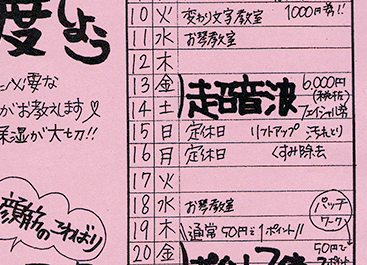 度しよう
必要な
がお教えします♡
保湿が大切!!
顔筋のこわばり
10 火 変わり文字教室 1000円券!!
11 水 お琴教室
12 木
13 金 超音波 6,000円
14 土 フェイシャル券
15 日 定休日 リフトアップ 汚れとり
16 月 定休日 くすみ除去
17 火
18 水 お琴教室 パッチワーク
19 木 通常50円で1ポイント!!
20 金 50円で